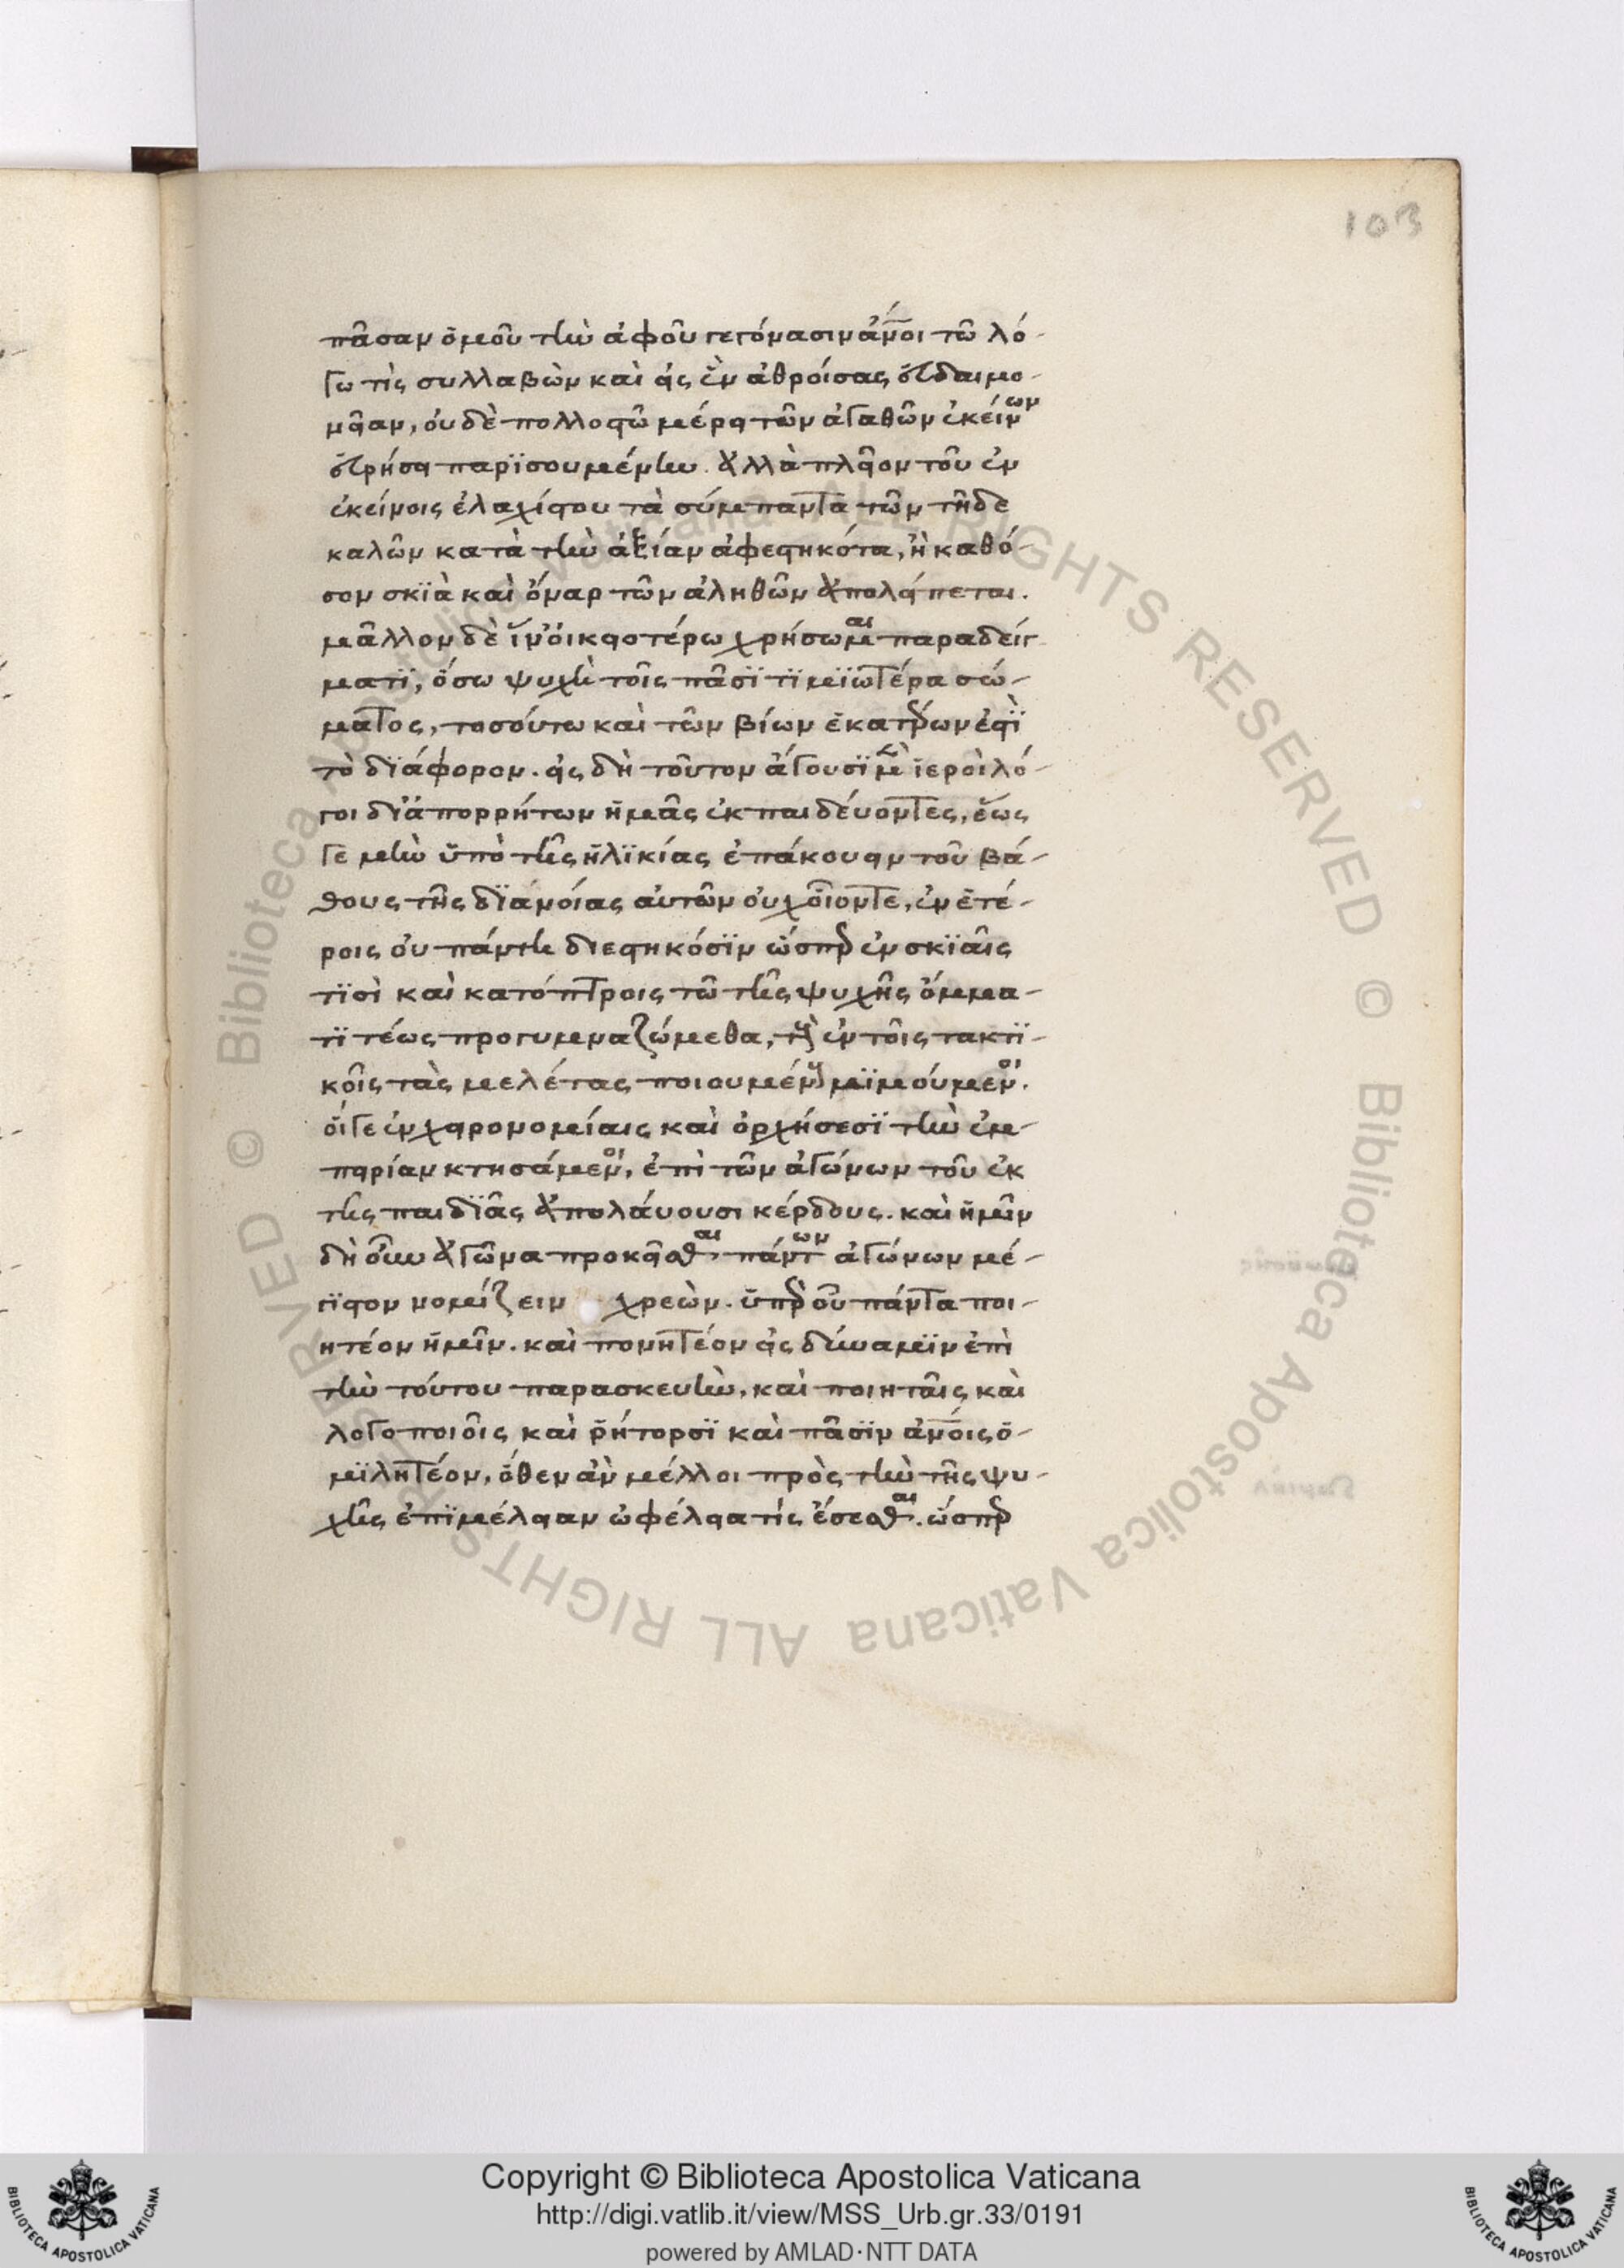 103
πᾶσαν ὁμοῦ τὴν ἀφοῦ γεγόνασιν ἄνοι τῶ λό-
γω τὶς συλλαβὼν καὶ εἰς ἓν ἀθροίσας εὐδαιμο-
νείαν, οὐδὲ πολλοστῶ μέρει τῶν ἀγαθῶν ἐκείνων
εὑρήσει παρϊσουμένην. ἀλλὰ πλεῖον τοῦ ἐν
ἐκείνοις ἐλαχίστου τὰ σύμπαντα τῶν τῆδε
καλῶν κατὰ τὴν ἀξίαν ἀφεστηκότα, ἢ καθό-
σον σκϊὰ καὶ ὄναρ τῶν ἀληθῶν ἀπολείπεται.
μᾶλλον δὲ ἵν' οἰκειοτέρω χρήσωμαι παραδείγ-
ματϊ, ὅσω ψυχὴ τοῖς πᾶσϊ τϊμϊωτέρα σώ-
ματος, τοσούτω καὶ τῶν βίων ἑκατέρων ἐστϊ
τὸ δϊάφορον. εἰς δὴ τοῦτον ἄγουσϊ μὲν ἱεροὶ λό-
γοι δι' ἀπορρήτων ἡμᾶς ἐκπαιδέυοντες, ἕως
γε μὴν ὑπὸ τῆς ἡλϊκίας ἐπάκουειν τοῦ βά-
θους τῆς δϊανοίας αὐτῶν οὐχοῖοντε, ἐν ἑτέ-
ροις οὐ πάντη διεστηκόσϊν ὥσπερ ἐν σκϊαῖς
τϊσὶ καὶ κατόπτροις τῶ τῆς ψυχῆς ὄμμα-
τϊ τέως προγυμναζώμεθα, τοὺς ἐν τοῖς τακτϊ-
κοῖς τὰς μελέτας ποιουμένους μϊμούμενοι.
οἵγε ἐν χειρονομίαις καὶ ὀρχήσεσϊ τὴν ἐμ-
πειρίαν κτησάμενοι, ἐπὶ τῶν ἀγώνων τοῦ ἐκ
τῆς παιδϊᾶς ἀπολάυουσι κέρδους. καὶ ἡμῖν
δὴ οὖν ἀγῶνα προκεῖσθαι πάντων ἀγώνων μέ-
γϊστον νομίζειν χρεὼν. ὑπὲρ οὗ πάντα ποι-
ητέον ἡμῖν. καὶ πονητέον εἰς δύναμϊν ἐπὶ
τὴν τούτου παρασκευὴν, καὶ ποιηταῖς καὶ
λογοποιοῖς καὶ ῥήτορσϊ καὶ πᾶσϊν ἀνοις ὁ-
μϊλητέον, ὅθεν ἂν μέλλοι πρὸς τὴν τῆς ψυ-
χῆς ἐπϊμέλειαν ὠφέλειά τις ἔσεσθαι. ὥσπερ
Copyright © Biblioteca Apostolica Vaticana
http://digi.vatlib.it/view/MSS_Urb.gr.33/0191
powered by AMLAD·NTT DATA
BIBLIOTECA APOSTOLICA VATICANA
BIBLIOTECA APOSTOLICA VATICANA
© Biblioteca Apostolica Vaticana ALL RIGHTS RESERVED © Biblioteca Apostolica Vaticana ALL RIGHTS RESERVED